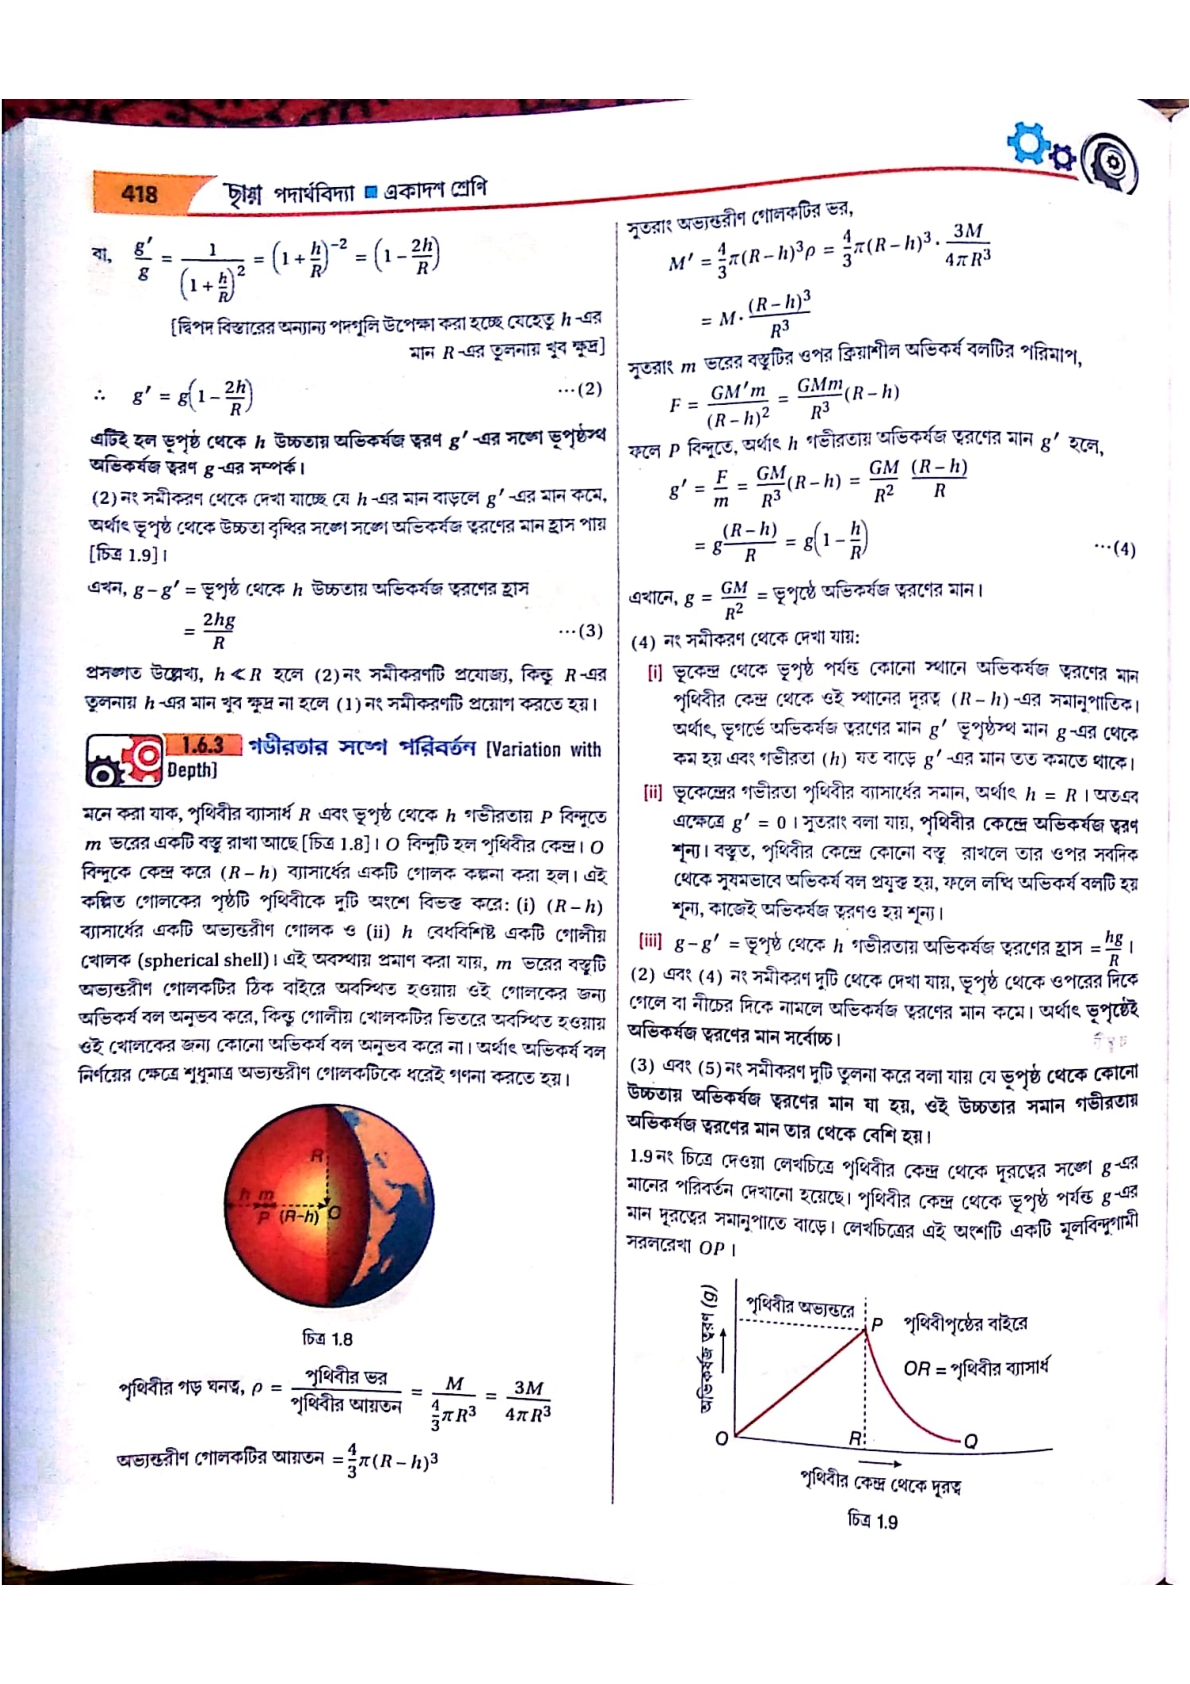 418 ছায়া পদার্থবিদ্যা ■ একাদশ শ্রেণি
বা, g′/g = 1/(1 + h/R)² = (1 + h/R)⁻² = (1 − 2h/R)
[দ্বিপদ বিস্তারের অন্যান্য পদগুলি উপেক্ষা করা হচ্ছে যেহেতু h-এর
মান R-এর তুলনায় খুব ক্ষুদ্র]
∴ g′ = g(1 − 2h/R) ···(2)
এটিই হল ভূপৃষ্ঠ থেকে h উচ্চতায় অভিকর্ষজ ত্বরণ g′-এর সঙ্গে ভূপৃষ্ঠস্থ
অভিকর্ষজ ত্বরণ g-এর সম্পর্ক।
(2) নং সমীকরণ থেকে দেখা যাচ্ছে যে h-এর মান বাড়লে g′-এর মান কমে,
অর্থাৎ ভূপৃষ্ঠ থেকে উচ্চতা বৃদ্ধির সঙ্গে সঙ্গে অভিকর্ষজ ত্বরণের মান হ্রাস পায়
[চিত্র 1.9]।
এখন, g − g′ = ভূপৃষ্ঠ থেকে h উচ্চতায় অভিকর্ষজ ত্বরণের হ্রাস
= 2hg/R ···(3)
প্রসঙ্গত উল্লেখ্য, h ≪ R হলে (2) নং সমীকরণটি প্রযোজ্য, কিন্তু R-এর
তুলনায় h-এর মান খুব ক্ষুদ্র না হলে (1) নং সমীকরণটি প্রয়োগ করতে হয়।
1.6.3 গভীরতার সঙ্গে পরিবর্তন [Variation with
Depth]
মনে করা যাক, পৃথিবীর ব্যাসার্ধ R এবং ভূপৃষ্ঠ থেকে h গভীরতায় P বিন্দুতে
m ভরের একটি বস্তু রাখা আছে [চিত্র 1.8]। O বিন্দুটি হল পৃথিবীর কেন্দ্র। O
বিন্দুকে কেন্দ্র করে (R − h) ব্যাসার্ধের একটি গোলক কল্পনা করা হল। এই
কল্পিত গোলকের পৃষ্ঠটি পৃথিবীকে দুটি অংশে বিভক্ত করে: (i) (R − h)
ব্যাসার্ধের একটি অভ্যন্তরীণ গোলক ও (ii) h বেধবিশিষ্ট একটি গোলীয়
খোলক (spherical shell)। এই অবস্থায় প্রমাণ করা যায়, m ভরের বস্তুটি
অভ্যন্তরীণ গোলকটির ঠিক বাইরে অবস্থিত হওয়ায় ওই গোলকের জন্য
অভিকর্ষ বল অনুভব করে, কিন্তু গোলীয় খোলকটির ভিতরে অবস্থিত হওয়ায়
ওই খোলকের জন্য কোনো অভিকর্ষ বল অনুভব করে না। অর্থাৎ অভিকর্ষ বল
নির্ণয়ের ক্ষেত্রে শুধুমাত্র অভ্যন্তরীণ গোলকটিকে ধরেই গণনা করতে হয়।
R
h m
P (R−h) O
চিত্র 1.8
পৃথিবীর গড় ঘনত্ব, ρ = পৃথিবীর ভর/পৃথিবীর আয়তন = M/(4/3 πR³) = 3M/4πR³
অভ্যন্তরীণ গোলকটির আয়তন = 4/3 π(R − h)³
সুতরাং অভ্যন্তরীণ গোলকটির ভর,
M′ = 4/3 π(R − h)³ρ = 4/3 π(R − h)³ · 3M/4πR³
= M · (R − h)³/R³
সুতরাং m ভরের বস্তুটির ওপর ক্রিয়াশীল অভিকর্ষ বলটির পরিমাপ,
F = GM′m/(R − h)² = GMm/R³ (R − h)
ফলে P বিন্দুতে, অর্থাৎ h গভীরতায় অভিকর্ষজ ত্বরণের মান g′ হলে,
g′ = F/m = GM/R³ (R − h) = GM/R² (R − h)/R
= g (R − h)/R = g(1 − h/R) ···(4)
এখানে, g = GM/R² = ভূপৃষ্ঠে অভিকর্ষজ ত্বরণের মান।
(4) নং সমীকরণ থেকে দেখা যায়:
[i] ভূকেন্দ্র থেকে ভূপৃষ্ঠ পর্যন্ত কোনো স্থানে অভিকর্ষজ ত্বরণের মান
পৃথিবীর কেন্দ্র থেকে ওই স্থানের দূরত্ব (R − h)-এর সমানুপাতিক।
অর্থাৎ, ভূগর্ভে অভিকর্ষজ ত্বরণের মান g′ ভূপৃষ্ঠস্থ মান g-এর থেকে
কম হয় এবং গভীরতা (h) যত বাড়ে g′-এর মান তত কমতে থাকে।
[ii] ভূকেন্দ্রের গভীরতা পৃথিবীর ব্যাসার্ধের সমান, অর্থাৎ h = R। অতএব
এক্ষেত্রে g′ = 0। সুতরাং বলা যায়, পৃথিবীর কেন্দ্রে অভিকর্ষজ ত্বরণ
শূন্য। বস্তুত, পৃথিবীর কেন্দ্রে কোনো বস্তু রাখলে তার ওপর সবদিক
থেকে সুষমভাবে অভিকর্ষ বল প্রযুক্ত হয়, ফলে লব্ধি অভিকর্ষ বলটি হয়
শূন্য, কাজেই অভিকর্ষজ ত্বরণও হয় শূন্য।
[iii] g − g′ = ভূপৃষ্ঠ থেকে h গভীরতায় অভিকর্ষজ ত্বরণের হ্রাস = hg/R।
(2) এবং (4) নং সমীকরণ দুটি থেকে দেখা যায়, ভূপৃষ্ঠ থেকে ওপরের দিকে
গেলে বা নীচের দিকে নামলে অভিকর্ষজ ত্বরণের মান কমে। অর্থাৎ ভূপৃষ্ঠেই
অভিকর্ষজ ত্বরণের মান সর্বোচ্চ।
(3) এবং (5) নং সমীকরণ দুটি তুলনা করে বলা যায় যে ভূপৃষ্ঠ থেকে কোনো
উচ্চতায় অভিকর্ষজ ত্বরণের মান যা হয়, ওই উচ্চতার সমান গভীরতায়
অভিকর্ষজ ত্বরণের মান তার থেকে বেশি হয়।
1.9 নং চিত্রে দেওয়া লেখচিত্রে পৃথিবীর কেন্দ্র থেকে দূরত্বের সঙ্গে g-এর
মানের পরিবর্তন দেখানো হয়েছে। পৃথিবীর কেন্দ্র থেকে ভূপৃষ্ঠ পর্যন্ত g-এর
মান দূরত্বের সমানুপাতে বাড়ে। লেখচিত্রের এই অংশটি একটি মূলবিন্দুগামী
সরলরেখা OP।
অভিকর্ষজ ত্বরণ (g)
পৃথিবীর অভ্যন্তরে P পৃথিবীপৃষ্ঠের বাইরে
OR = পৃথিবীর ব্যাসার্ধ
O R Q
পৃথিবীর কেন্দ্র থেকে দূরত্ব
চিত্র 1.9